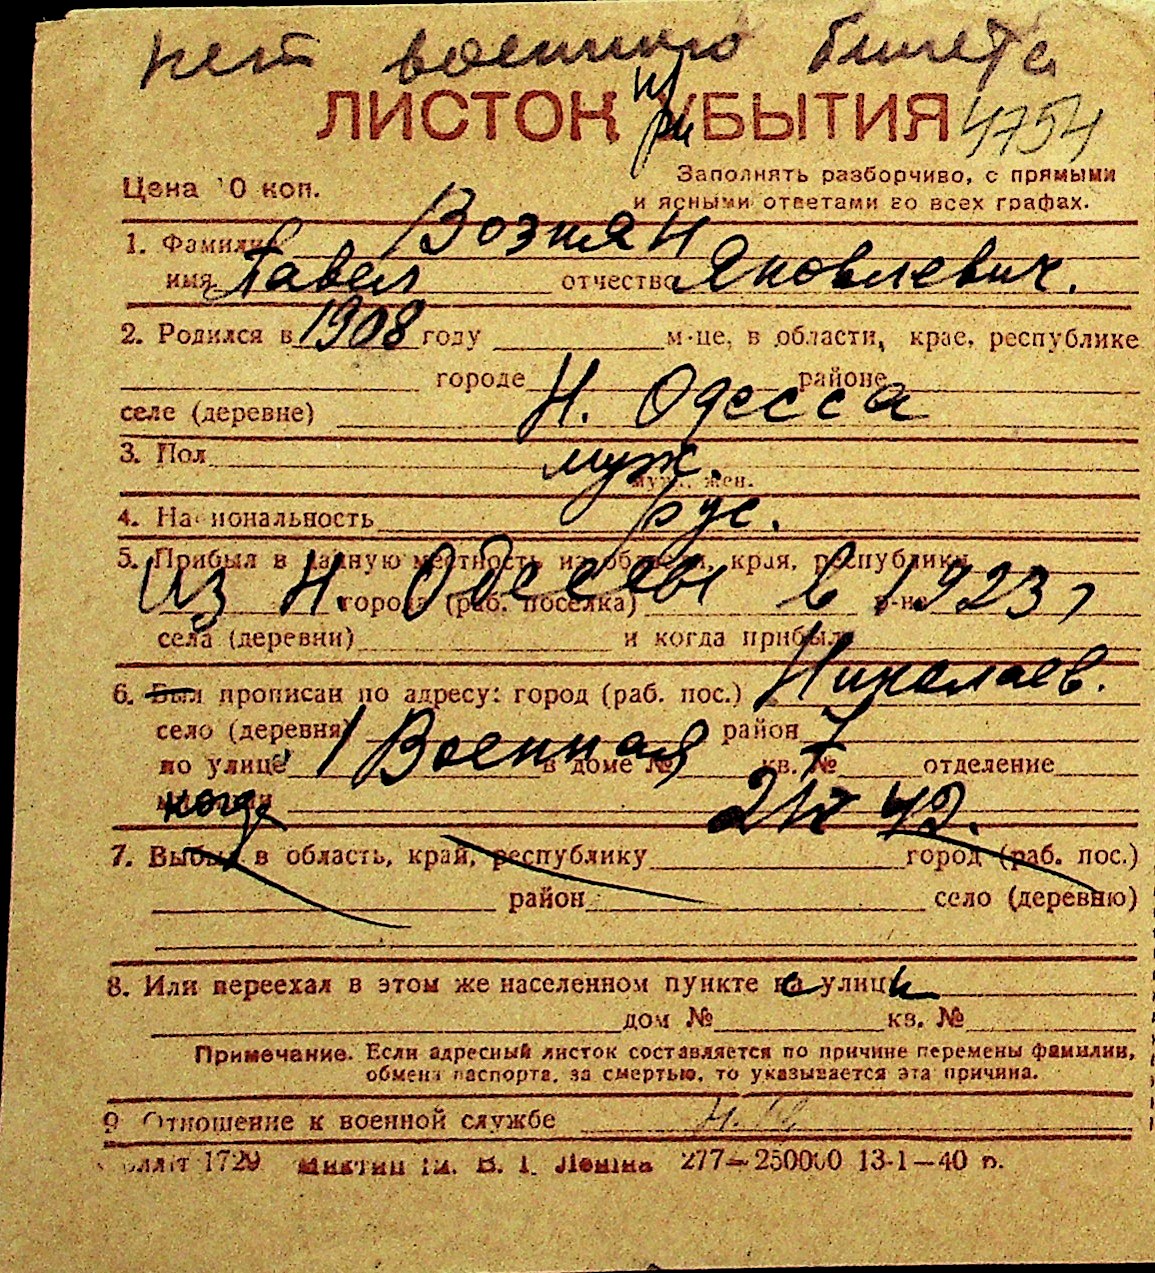 нет военного билета
ЛИСТОК УБЫТИЯ 4754
при
Цена 0 коп.
Заполнять разборчиво, с прямыми
и ясными ответами во всех графах.
1. Фамилия Возиян
имя Павел отчество Яковлевич.
2. Родился в 1908 году м-це, в области, крае, республике
городе районе
селе (деревне) Н. Одесса
3. Пол муж.
муж. жен.
4. Национальность рус.
5. Прибыл в данную местность из области, края, республики
из Н. Одессы в 1923 г
города (раб. поселка) р-на
села (деревни) и когда прибыл
6. Был прописан по адресу: город (раб. пос.) Николаев.
село (деревня) район
по улице 1 Военная в доме № 7 кв. № отделение
когда 42.
7. Выбыл в область, край, республику город (раб. пос.)
район село (деревню)
8. Или переехал в этом же населенном пункте на улицу
дом № кв. №
Примечание. Если адресный листок составляется по причине перемены фамилии,
обмена паспорта, за смертью, то указывается эта причина.
9 Отношение к военной службе
1729 им. В. И. Ленина 277—250000 13-1—40 р.